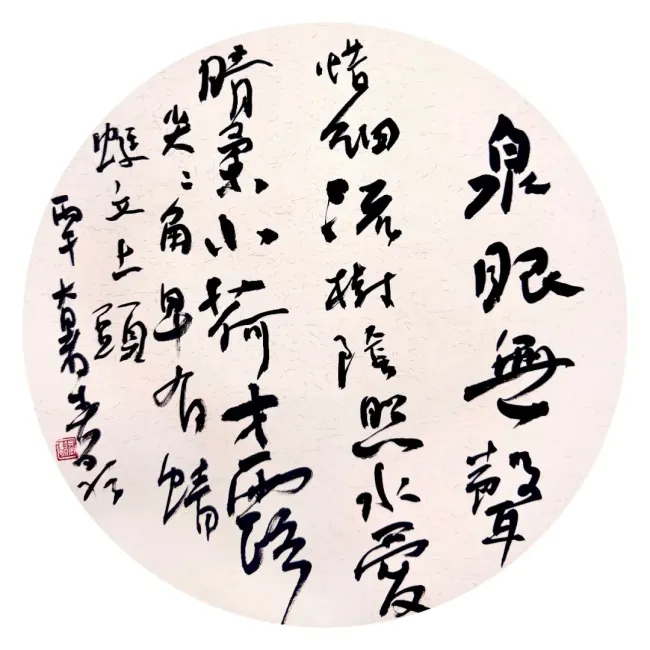 泉眼無聲
惜細流樹陰照水愛
晴柔小荷才露
尖々角早有蜻
蜓立上頭
丙午大暑